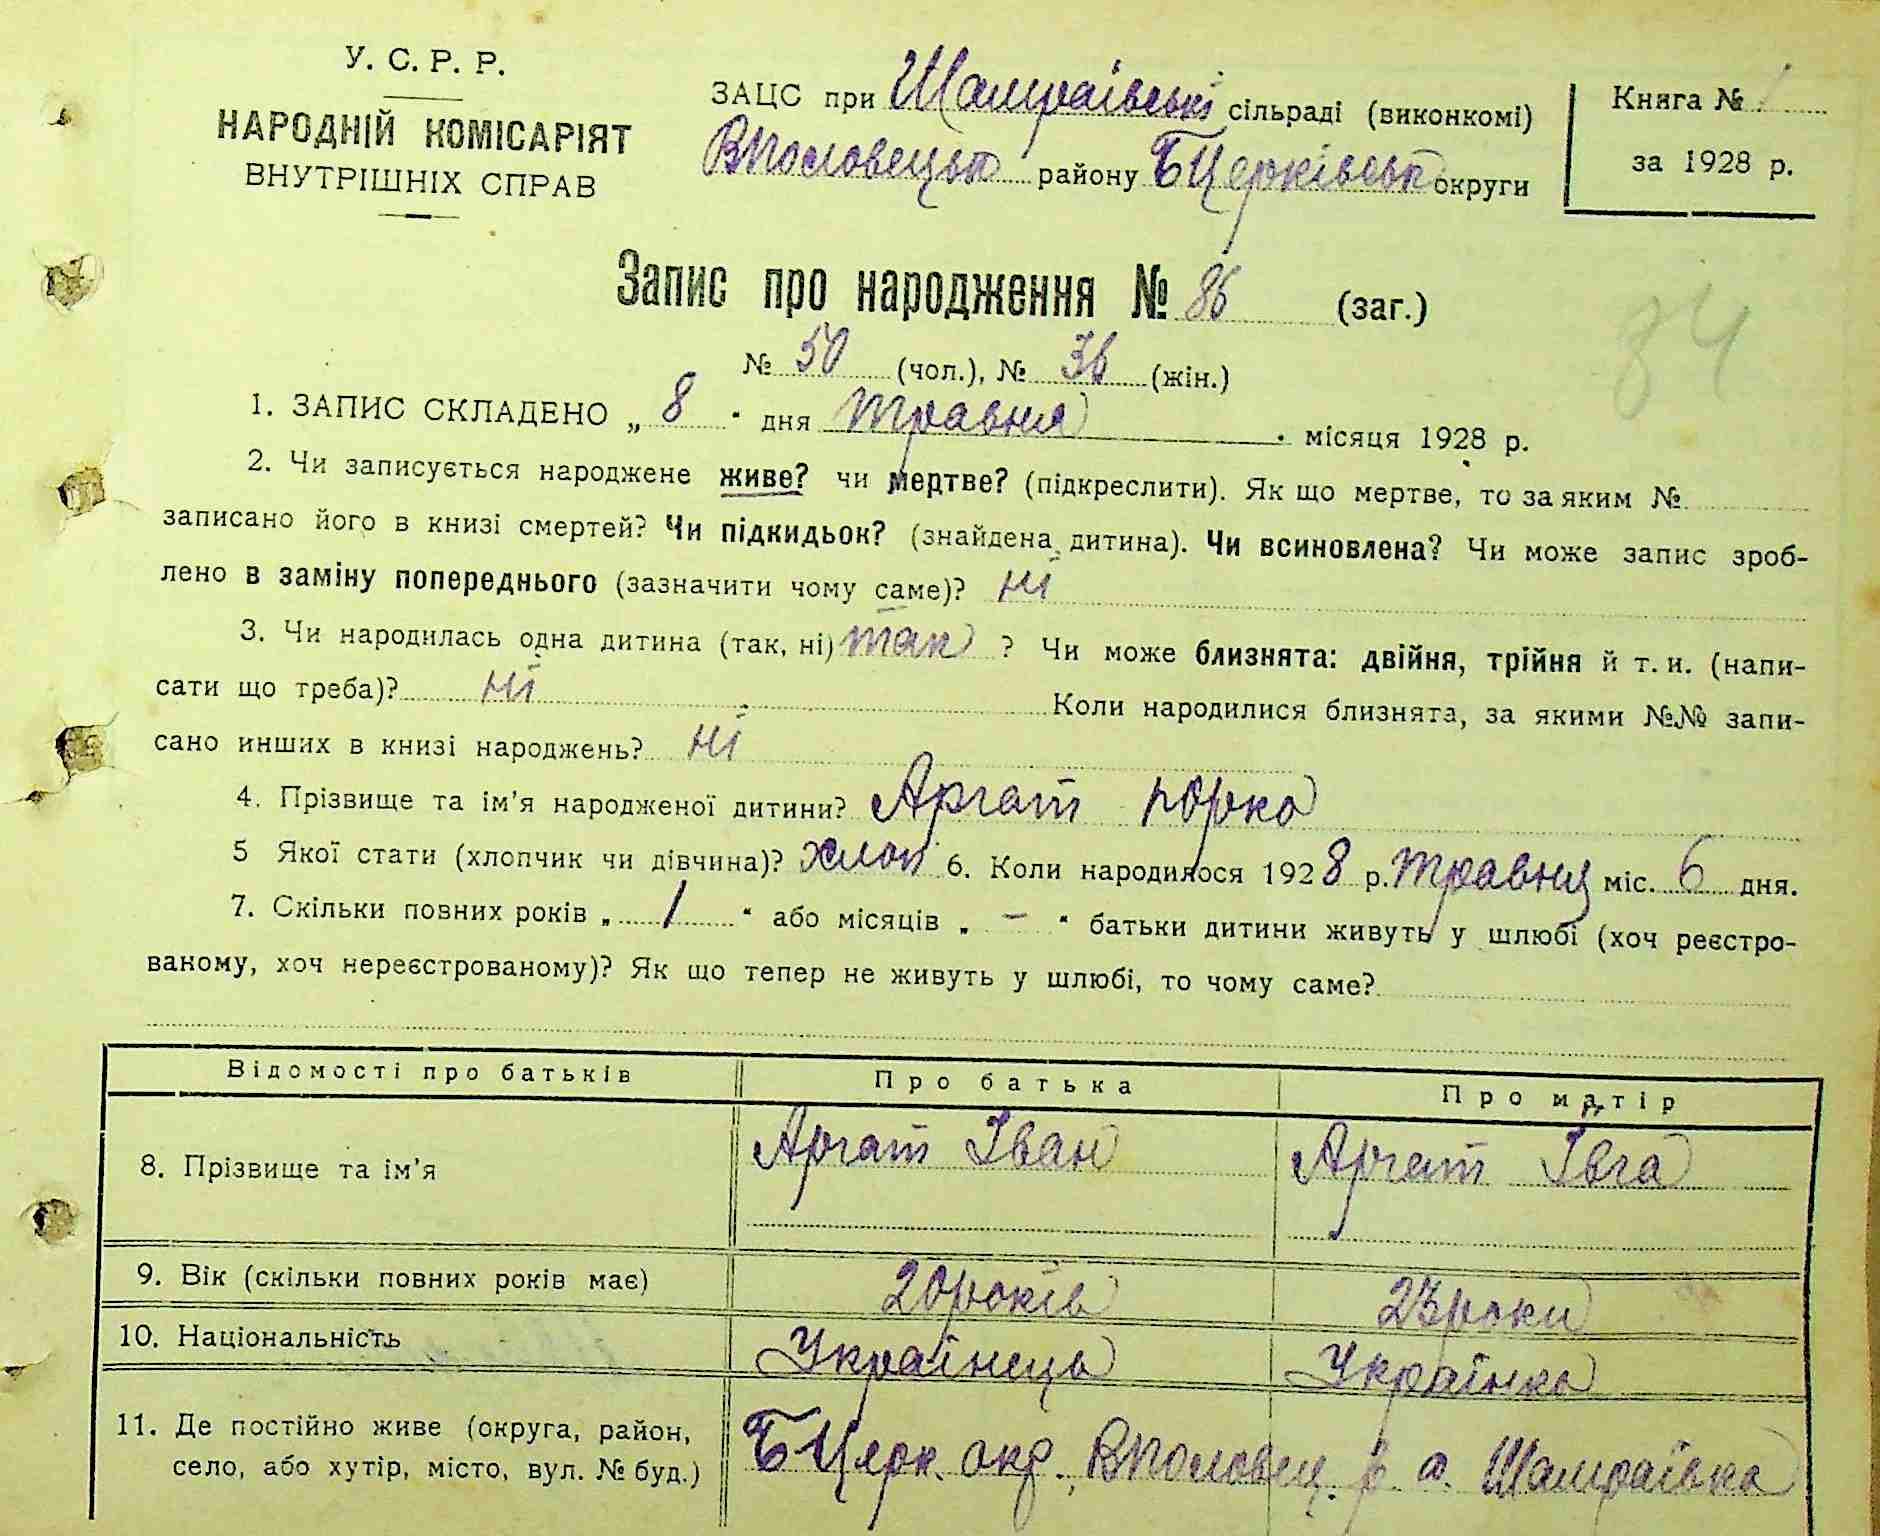 У. С. Р. Р.
НАРОДНІЙ КОМІСАРІЯТ
ВНУТРІШНІХ СПРАВ
ЗАЦС при Шамраївські сільраді (виконкомі)
ВПоловецьк району БЦерківськ округи
Книга № 1
за 1928 р.
Запис про народження № 86 (заг.)
84
№ 50 (чол.), № 36 (жін.)
1. ЗАПИС СКЛАДЕНО „ 8 " дня травня місяця 1928 р.
2. Чи записується народжене живе? чи мертве? (підкреслити). Як що мертве, то за яким №
записано його в книзі смертей? Чи підкидьок? (знайдена дитина). Чи всиновлена? Чи може запис зроб-
лено в заміну попереднього (зазначити чому саме)? ні
3. Чи народилась одна дитина (так, ні) так ? Чи може близнята: двійня, трійня й т. и. (напи-
сати що треба)? ні Коли народилися близнята, за якими №№ запи-
сано инших в книзі народжень? ні
4. Прізвище та ім'я народженої дитини? Аргат Юрко
5 Якої стати (хлопчик чи дівчина)? хлоп 6. Коли народилося 1928 р. травня міс. 6 дня.
7. Скільки повних років „ 1 " або місяців „ — " батьки дитини живуть у шлюбі (хоч реєстро-
ваному, хоч нереєстрованому)? Як що тепер не живуть у шлюбі, то чому саме?
Відомості про батьків Про батька Про матір
8. Прізвище та ім'я Аргат Іван Аргат Ївга
9. Вік (скільки повних років має) 20 років 23 роки
10. Національність Українець Українка
11. Де постійно живе (округа, район,
село, або хутір, місто, вул. № буд.) БЦерк. окр., ВПоловец. р. с. Шамраївка